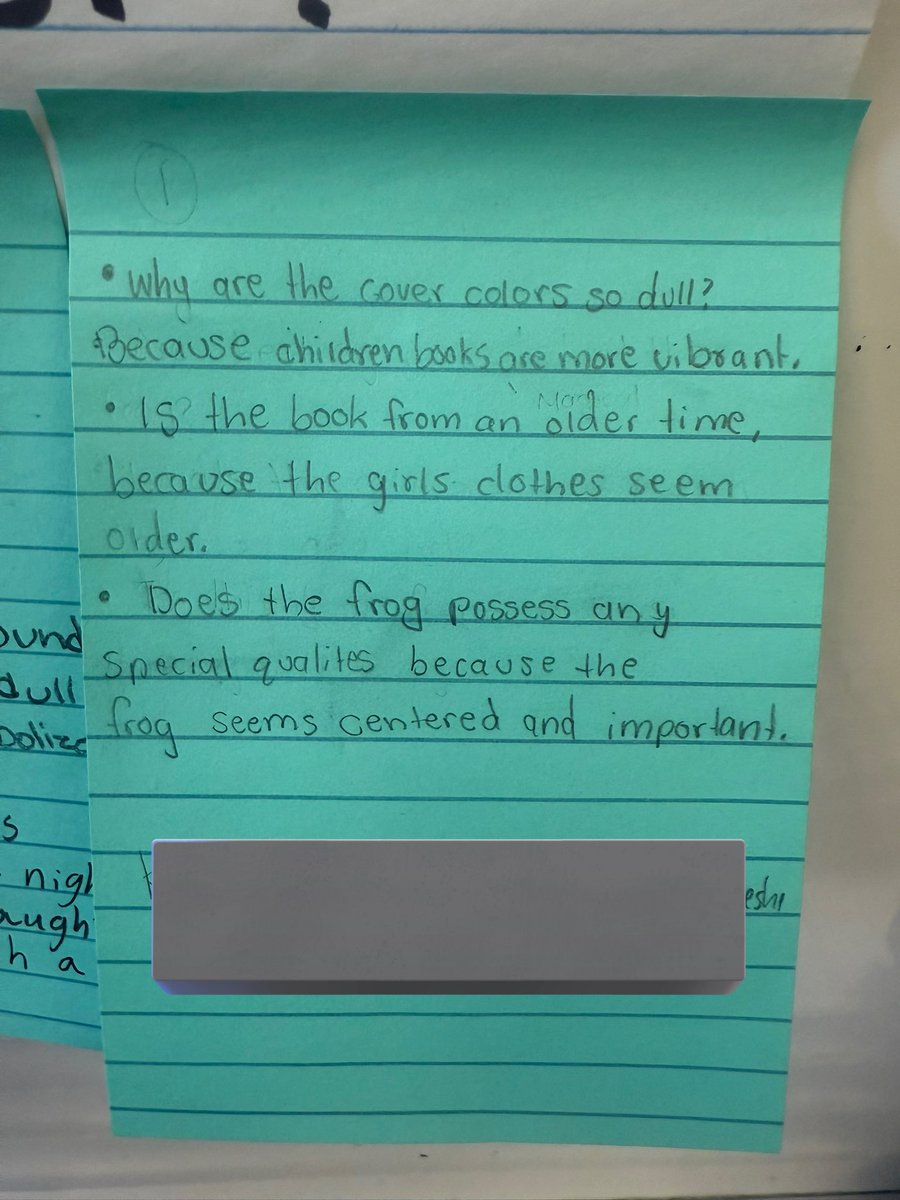 1
• Why are the cover colors so dull?
Because children books are more vibrant.
• Is the book from an older time,
because the girls clothes seem
older.
• Does the frog possess any
special qualites because the
frog seems centered and important.
ound
dull
bolize
s
nigh
augh
h a